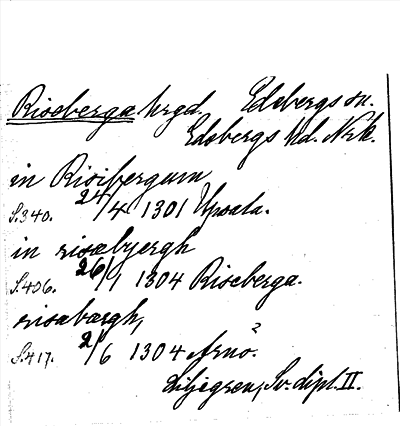 Riseberga hrgd, Edsbergs sn.
Edsbergs hd. Nrk.
in Risibergum
S. 340. 24/4 1301 Upsala.
in risæbjergh
S. 406. 26/1 1304 Riseberga.
risabærgh,
S. 417. 2/6 1304 Arnö?
Liljegren, Sv. dipl. II.